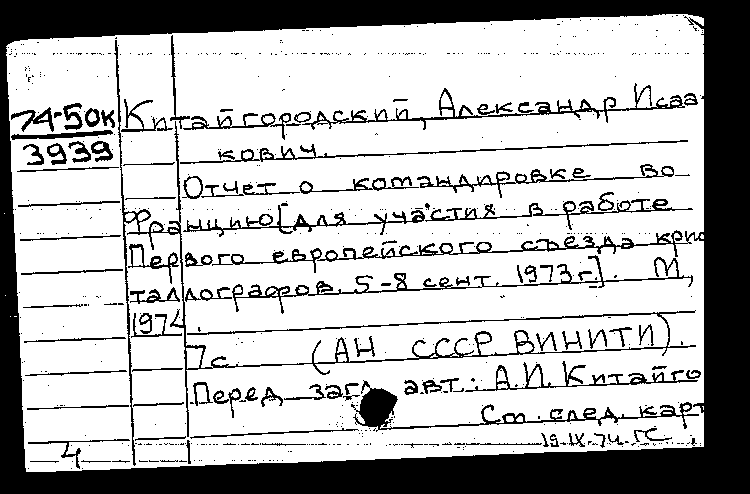 74-50к Китайгородский, Александр Исаа-
3939 кович.
Отчет о командировке во
Францию [для участия в работе
Первого европейского съезда крис
таллографов. 5-8 сент. 1973г.]. М,
1974.
7с. (АН СССР. ВИНИТИ).
Перед загл. авт.: А.И. Китайго
Ст. след. карт
19.IX.74. ГС.
4